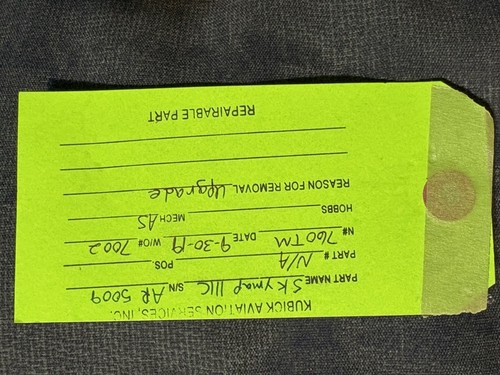 KUBICK AVIATION SERVICES, INC.
PART NAME Skymap IIIC S/N AR 5009
PART # N/A POS.
N# 760TM DATE 9-30-19 W/O# 7002
HOBBS MECH AS
REASON FOR REMOVAL Upgrade
REPAIRABLE PART